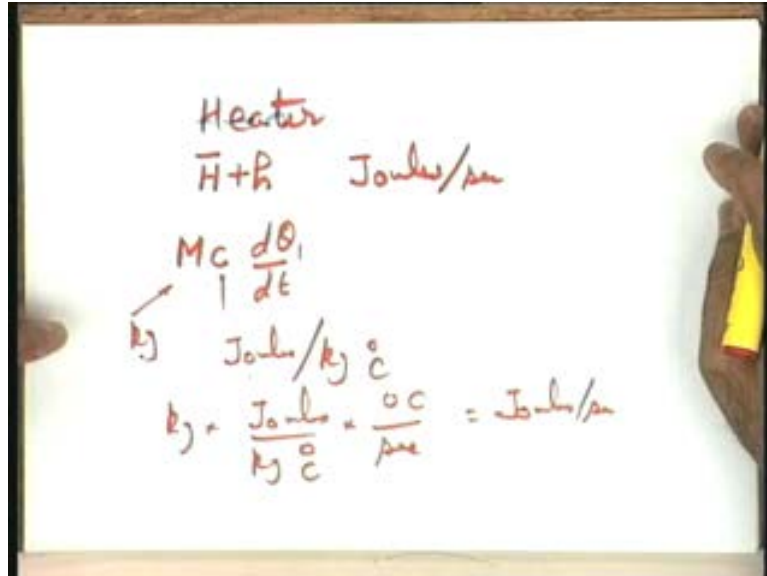 Heater
H̅+h Joules/sec
Mc dθ₁/dt
kg Joules/kg °C
kg × Joules/kg °C × °C/sec = Joules/sec